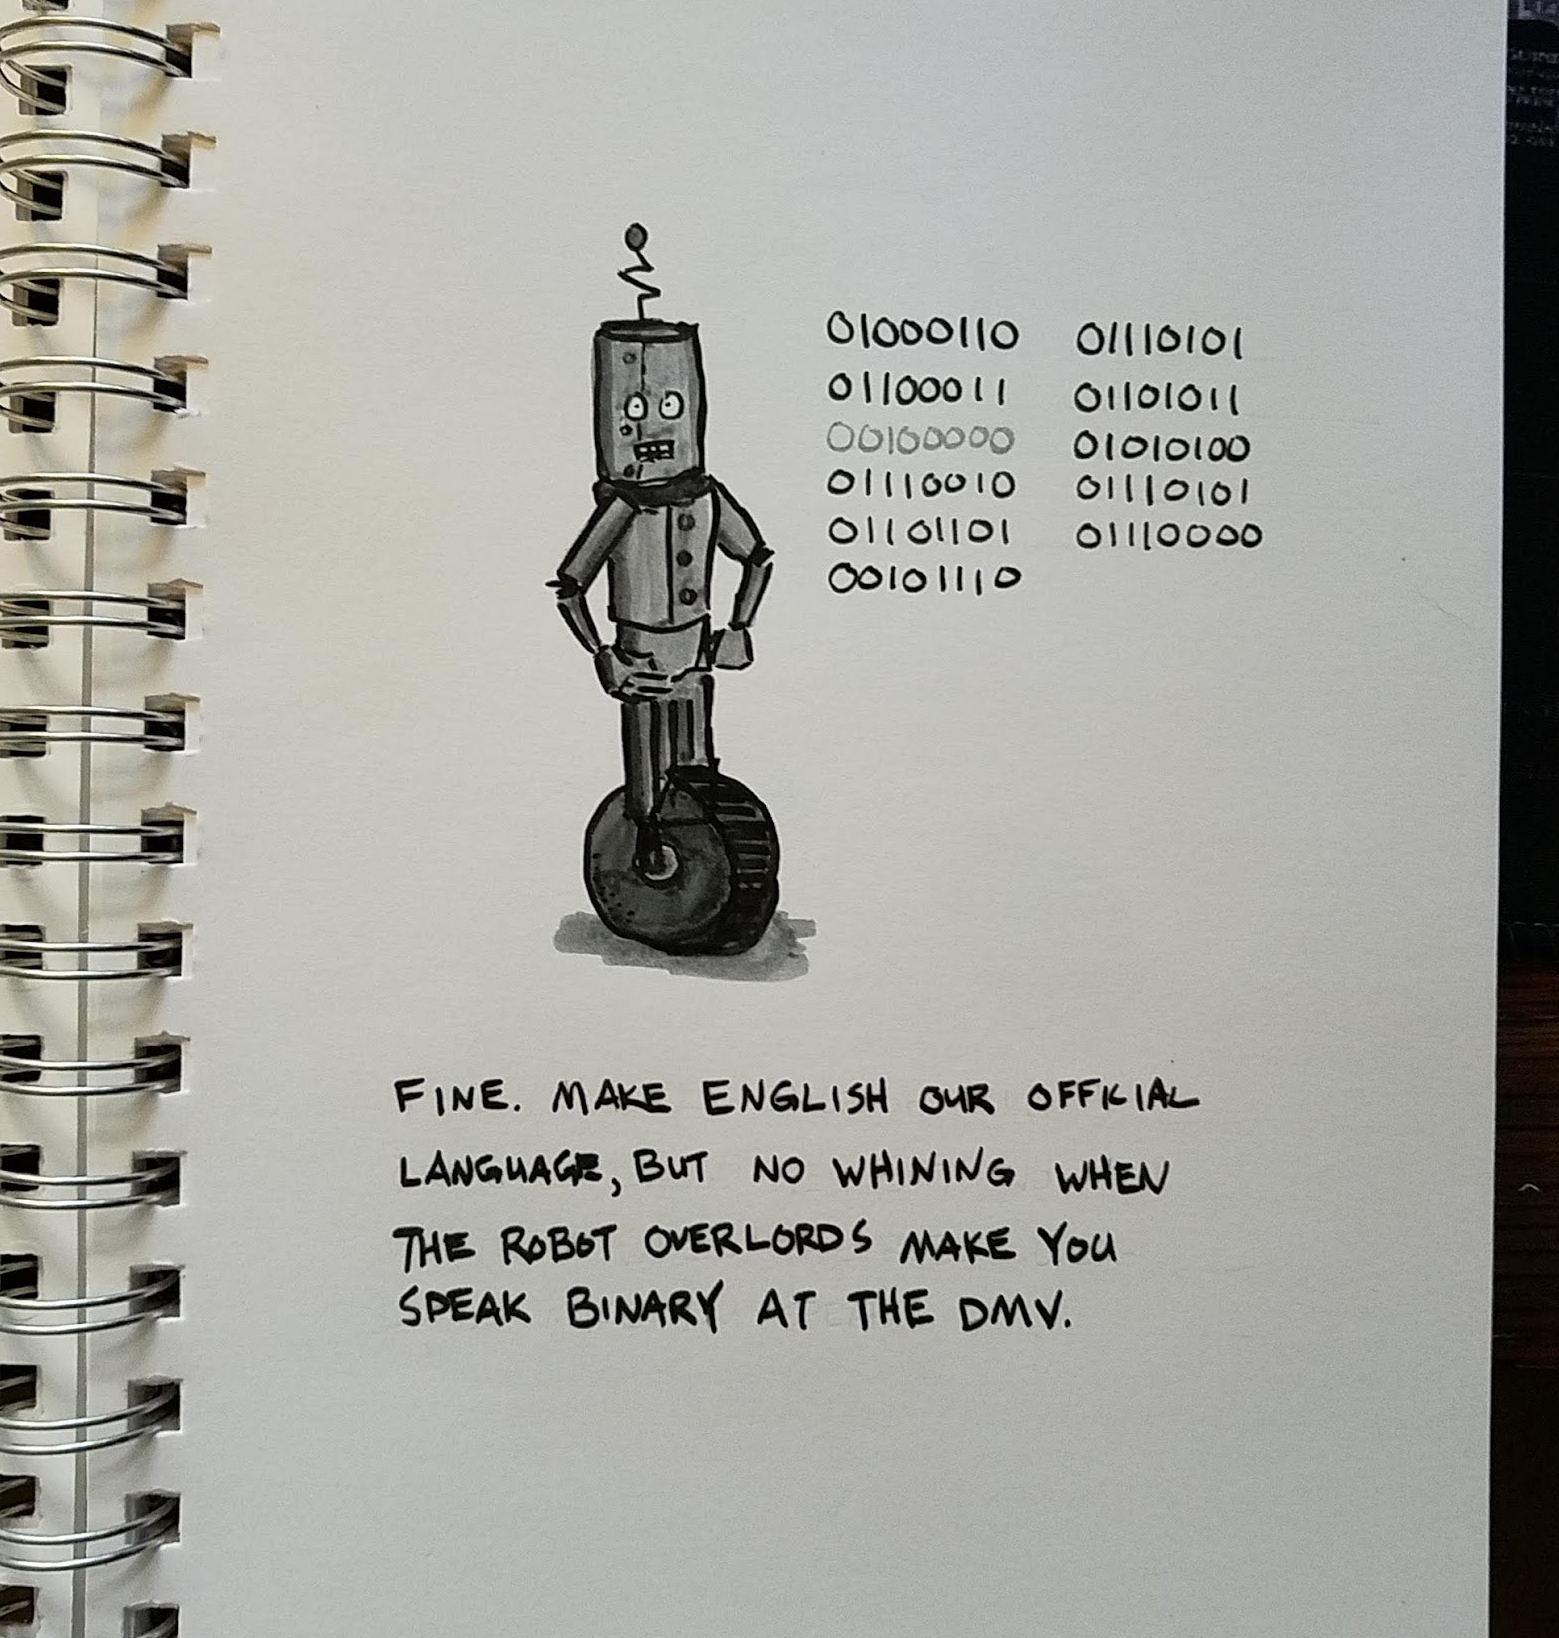 01000110 01110101
01100011 01101011
00100000 01010100
01110010 01110101
01101101 01110000
00101110
FINE. MAKE ENGLISH OUR OFFICIAL
LANGUAGE, BUT NO WHINING WHEN
THE ROBOT OVERLORDS MAKE YOU
SPEAK BINARY AT THE DMV.